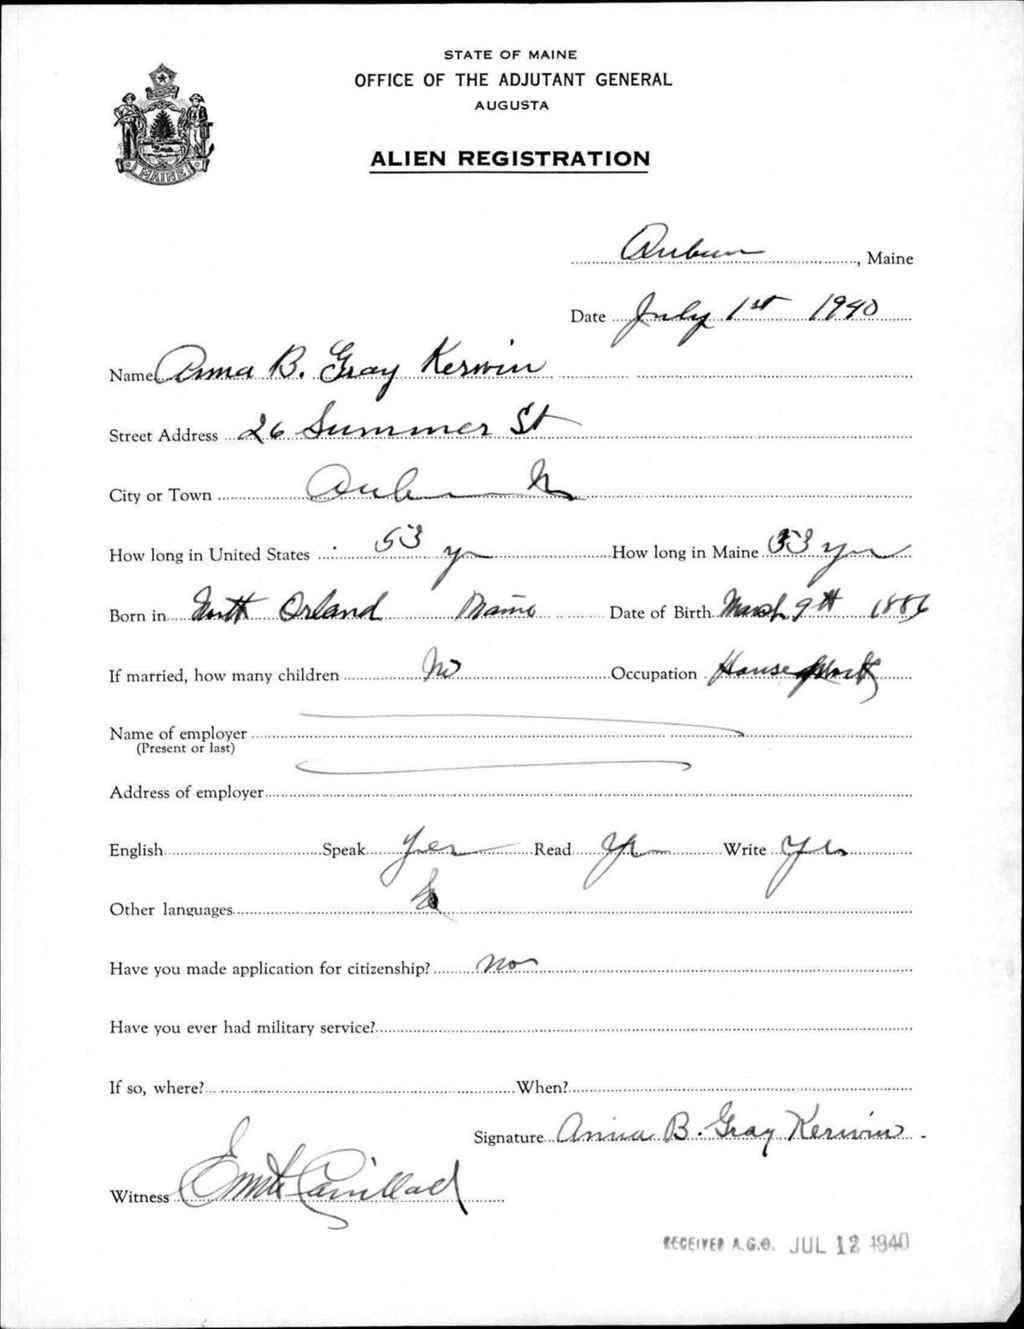 STATE OF MAINE
OFFICE OF THE ADJUTANT GENERAL
AUGUSTA
ALIEN REGISTRATION
MAINE
Auburn, Maine
Date July 1st 1940
Name Anna B. Gray Kerwin
Street Address 26 Summer St
City or Town Auburn Me
How long in United States 53 yr How long in Maine 53 yr
Born in North Orland Maine Date of Birth March 9th 1886
If married, how many children No Occupation Housework
Name of employer
(Present or last)
Address of employer
English Speak Yes Read Yes Write Yes
Other languages
Have you made application for citizenship? No
Have you ever had military service?
If so, where? When?
Signature Anna B. Gray Kerwin
Witness
RECEIVED A.G.O. JUL 12 1940